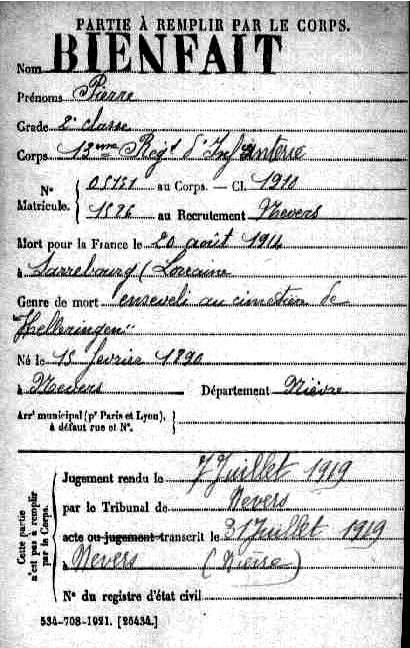 PARTIE À REMPLIR PAR LE CORPS.
Nom BIENFAIT
Prénoms Pierre
Grade 2e classe
Corps 13ème Regt d'Infanterie
N° Matricule. { 05151 au Corps. — Cl. 1910
1526 au Recrutement Nevers
Mort pour la France le 20 août 1914
à Sarrebourg (Lorraine
Genre de mort "enseveli au cimetière de
Helleringen"
Né le 15 février 1890
à Nevers Département Nièvre
Arrt municipal (pr Paris et Lyon),
à défaut rue et N°. }
Cette partie n'est pas à remplir par le Corps. { Jugement rendu le 7 Juillet 1919
par le Tribunal de Nevers
acte ou jugement transcrit le 31 Juillet 1919
à Nevers (Nièvre)
N° du registre d'état civil
534-708-1921. [26434.]